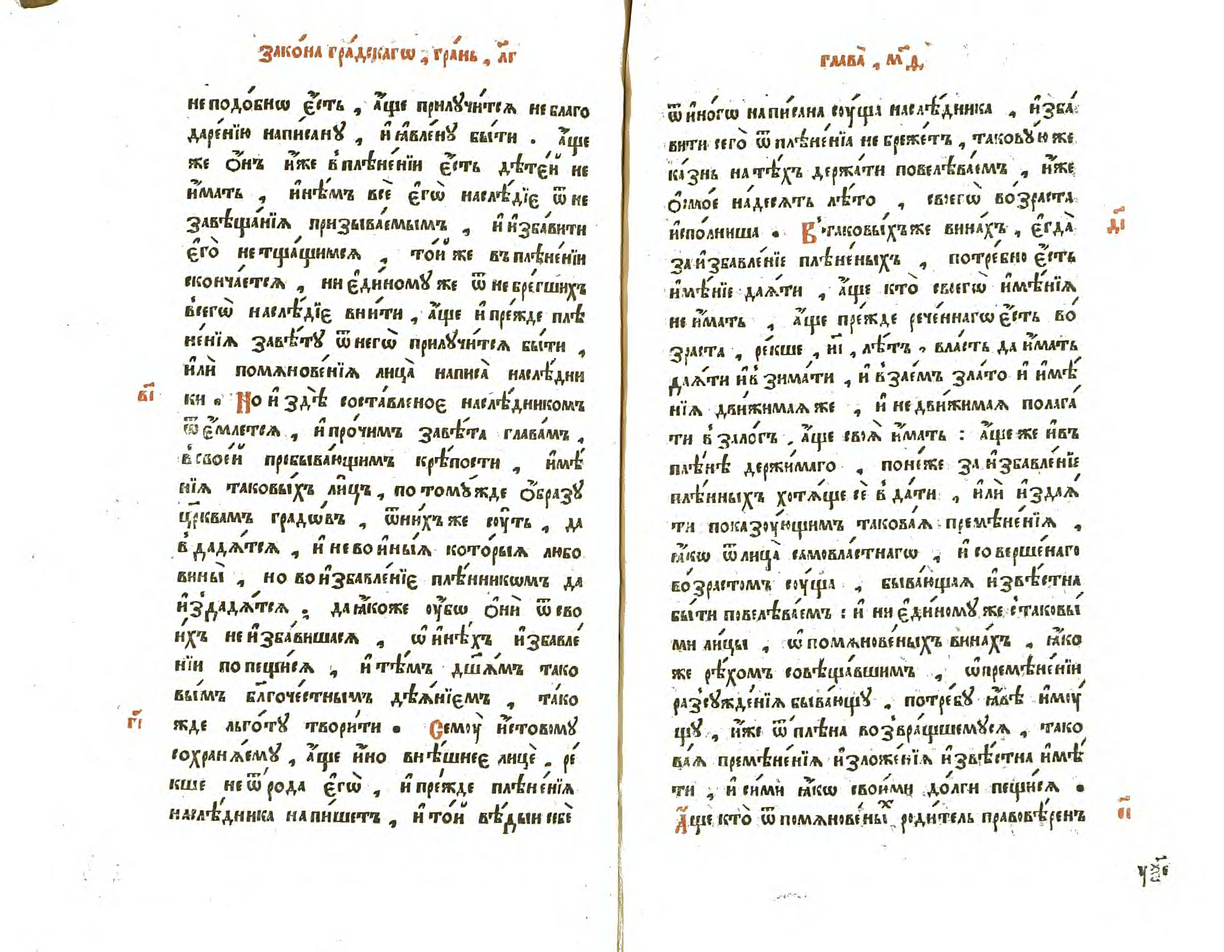 Зако́на гра́дскагѡ , гра́нь , л҃г
не подо́бнѡ є҆́сть , а҆́ще прилꙋчи́тсѧ не благо
даре́нїю написанꙋ , и҆ ꙗ҆вле́нꙋ бы́ти . а҆́ще
же ѻ҆́нъ и҆́же в̾ плѣне́нїи є҆́сть дѣте́й не
и҆́мать , и҆нѣ́мъ всѐ є҆гѡ̀ наслѣ́дїе ѿ не
завѣща́нїѧ призыва́емымъ , и҆ и҆зба́вити
є҆го̀ не тща́щимсѧ , то́й же въ плѣне́нїи
сконча́етсѧ , ни є҆ди́номꙋ же ѿ небре́гшихъ
всегѡ̀ наслѣ́дїе вни́ти , а҆́ще и҆ пре́жде плѣ
не́нїѧ завѣ́тꙋ ѿ негѡ̀ прилꙋчи́тсѧ бы́ти ,
и҆лѝ помѧнове́нїѧ лица̀ написа̀ наслѣ́дни
в҃і
ки . Но и҆ здѣ̀ соста́вленое наслѣ́дникомъ
ѿе́млетсѧ , и҆ про́чимъ завѣ́та глава́мъ ,
в̾ свое́й пребыва́ющимъ крѣ́пости , и҆мѣ́
нїѧ таковы́хъ ли́цъ , по томꙋ́жде ѻ҆́бразꙋ
цр҃квамъ градѡ́въ , ѿ ни́хъ же сꙋ́ть , да
в̾дадѧ́тсѧ , и҆ не во и҆ны́ѧ кото́рыѧ либо
вины̀ , но во и҆збавле́нїе плѣ́нникѡмъ да
и҆здадѧ́тсѧ . да ꙗ҆́коже ᲂу҆́бѡ ѻ҆нѝ ѿ сво
и́хъ не и҆зба́вишасѧ , ѡ҆ и҆нѣ́хъ и҆збавле́
нїи по пещи́сѧ , и҆ тѣ́мъ дш҃а́мъ тако
вы́мъ бл҃гоче́стнымъ дѣѧ́нїемъ , та́ко
г҃і
жде льго́тꙋ твори́ти . Семꙋ̀ и҆́стовомꙋ
сохранѧ́емꙋ , а҆́ще и҆́но внѣ́шнее лицѐ , ре́
кше не ѿ рода є҆гѡ̀ , и҆ пре́жде плѣне́нїѧ
наслѣ́дника напи́шетъ , и҆ то́й вѣ́дыи себѐ
Глава̀ , м҃д
ѿ и҆ного написана сꙋ́ща наслѣ́дника , и҆зба́
вити сего̀ ѿ плѣне́нїѧ не бреже́тъ , таковꙋ́ю же
ка́знь на тѣ́хъ держа́ти повелѣва́емъ , и҆́же
ѻ҆смо́е на́десѧть лѣ́то , своегѡ̀ во́зраста
д҃і
и҆спо́лниша . В̾ таковы́хъ же вина́хъ , є҆гда̀
за и҆збавле́нїе плѣне́ныхъ , потре́бно є҆́сть
и҆мѣ́нїе даѧ́ти , а҆́ще кто̀ своегѡ̀ и҆мѣ́нїѧ
не и҆́мать , а҆́ще пре́жде рече́ннагѡ є҆́сть во́
зраста , ре́кше , и҃і , лѣ́тъ , вла́сть да и҆́мать
даѧ́ти и҆ взима́ти , и҆ взае́мъ зла́то и҆ и҆мѣ́
нїѧ дви́жимаѧ же , и҆ недви́жимаѧ полага́
ти в̾ зало́гъ , а҆́ще своѧ̀ и҆́мать : а҆́ще же и҆ въ
плѣ́нѣ держи́маго , поне́же за и҆збавле́нїе
плѣ́нныхъ хотѧ́ще сѐ в̾да́ти , и҆лѝ и҆здаѧ́
ти показꙋ́ющимъ такова́ѧ премѣне́нїѧ ,
ꙗ҆́кѡ ѿ лица̀ самовла́стнагѡ , и҆ соверше́наго
во́зрастомъ сꙋ́ща , быва́ющаѧ и҆звѣ́стна
бы́ти повелѣва́емъ : и҆ ни є҆ди́номꙋ же с̾ таковы́
ми ли́цы , ѡ҆ помѧнове́ныхъ вина́хъ , ꙗ҆́ко
же рѣ́хомъ совѣща́вшимъ , ѡ҆ премѣне́нїи
разсꙋжде́нїѧ быва́ющꙋ , потре́бꙋ ꙗ҆́вѣ и҆мꙋ́
щꙋ , и҆́же ѿ плѣ́на возвра́щшемꙋсѧ , тако
ва́ѧ премѣне́нїѧ и҆зложе́нїѧ и҆звѣ́стна и҆мѣ́
ти , и҆ си́ми ꙗ҆́кѡ свои́ми до́лги пещи́сѧ .
є҃і
А҆́ще кто̀ ѿ помѧнове́ныхъ роди́тель правовѣ́ренъ